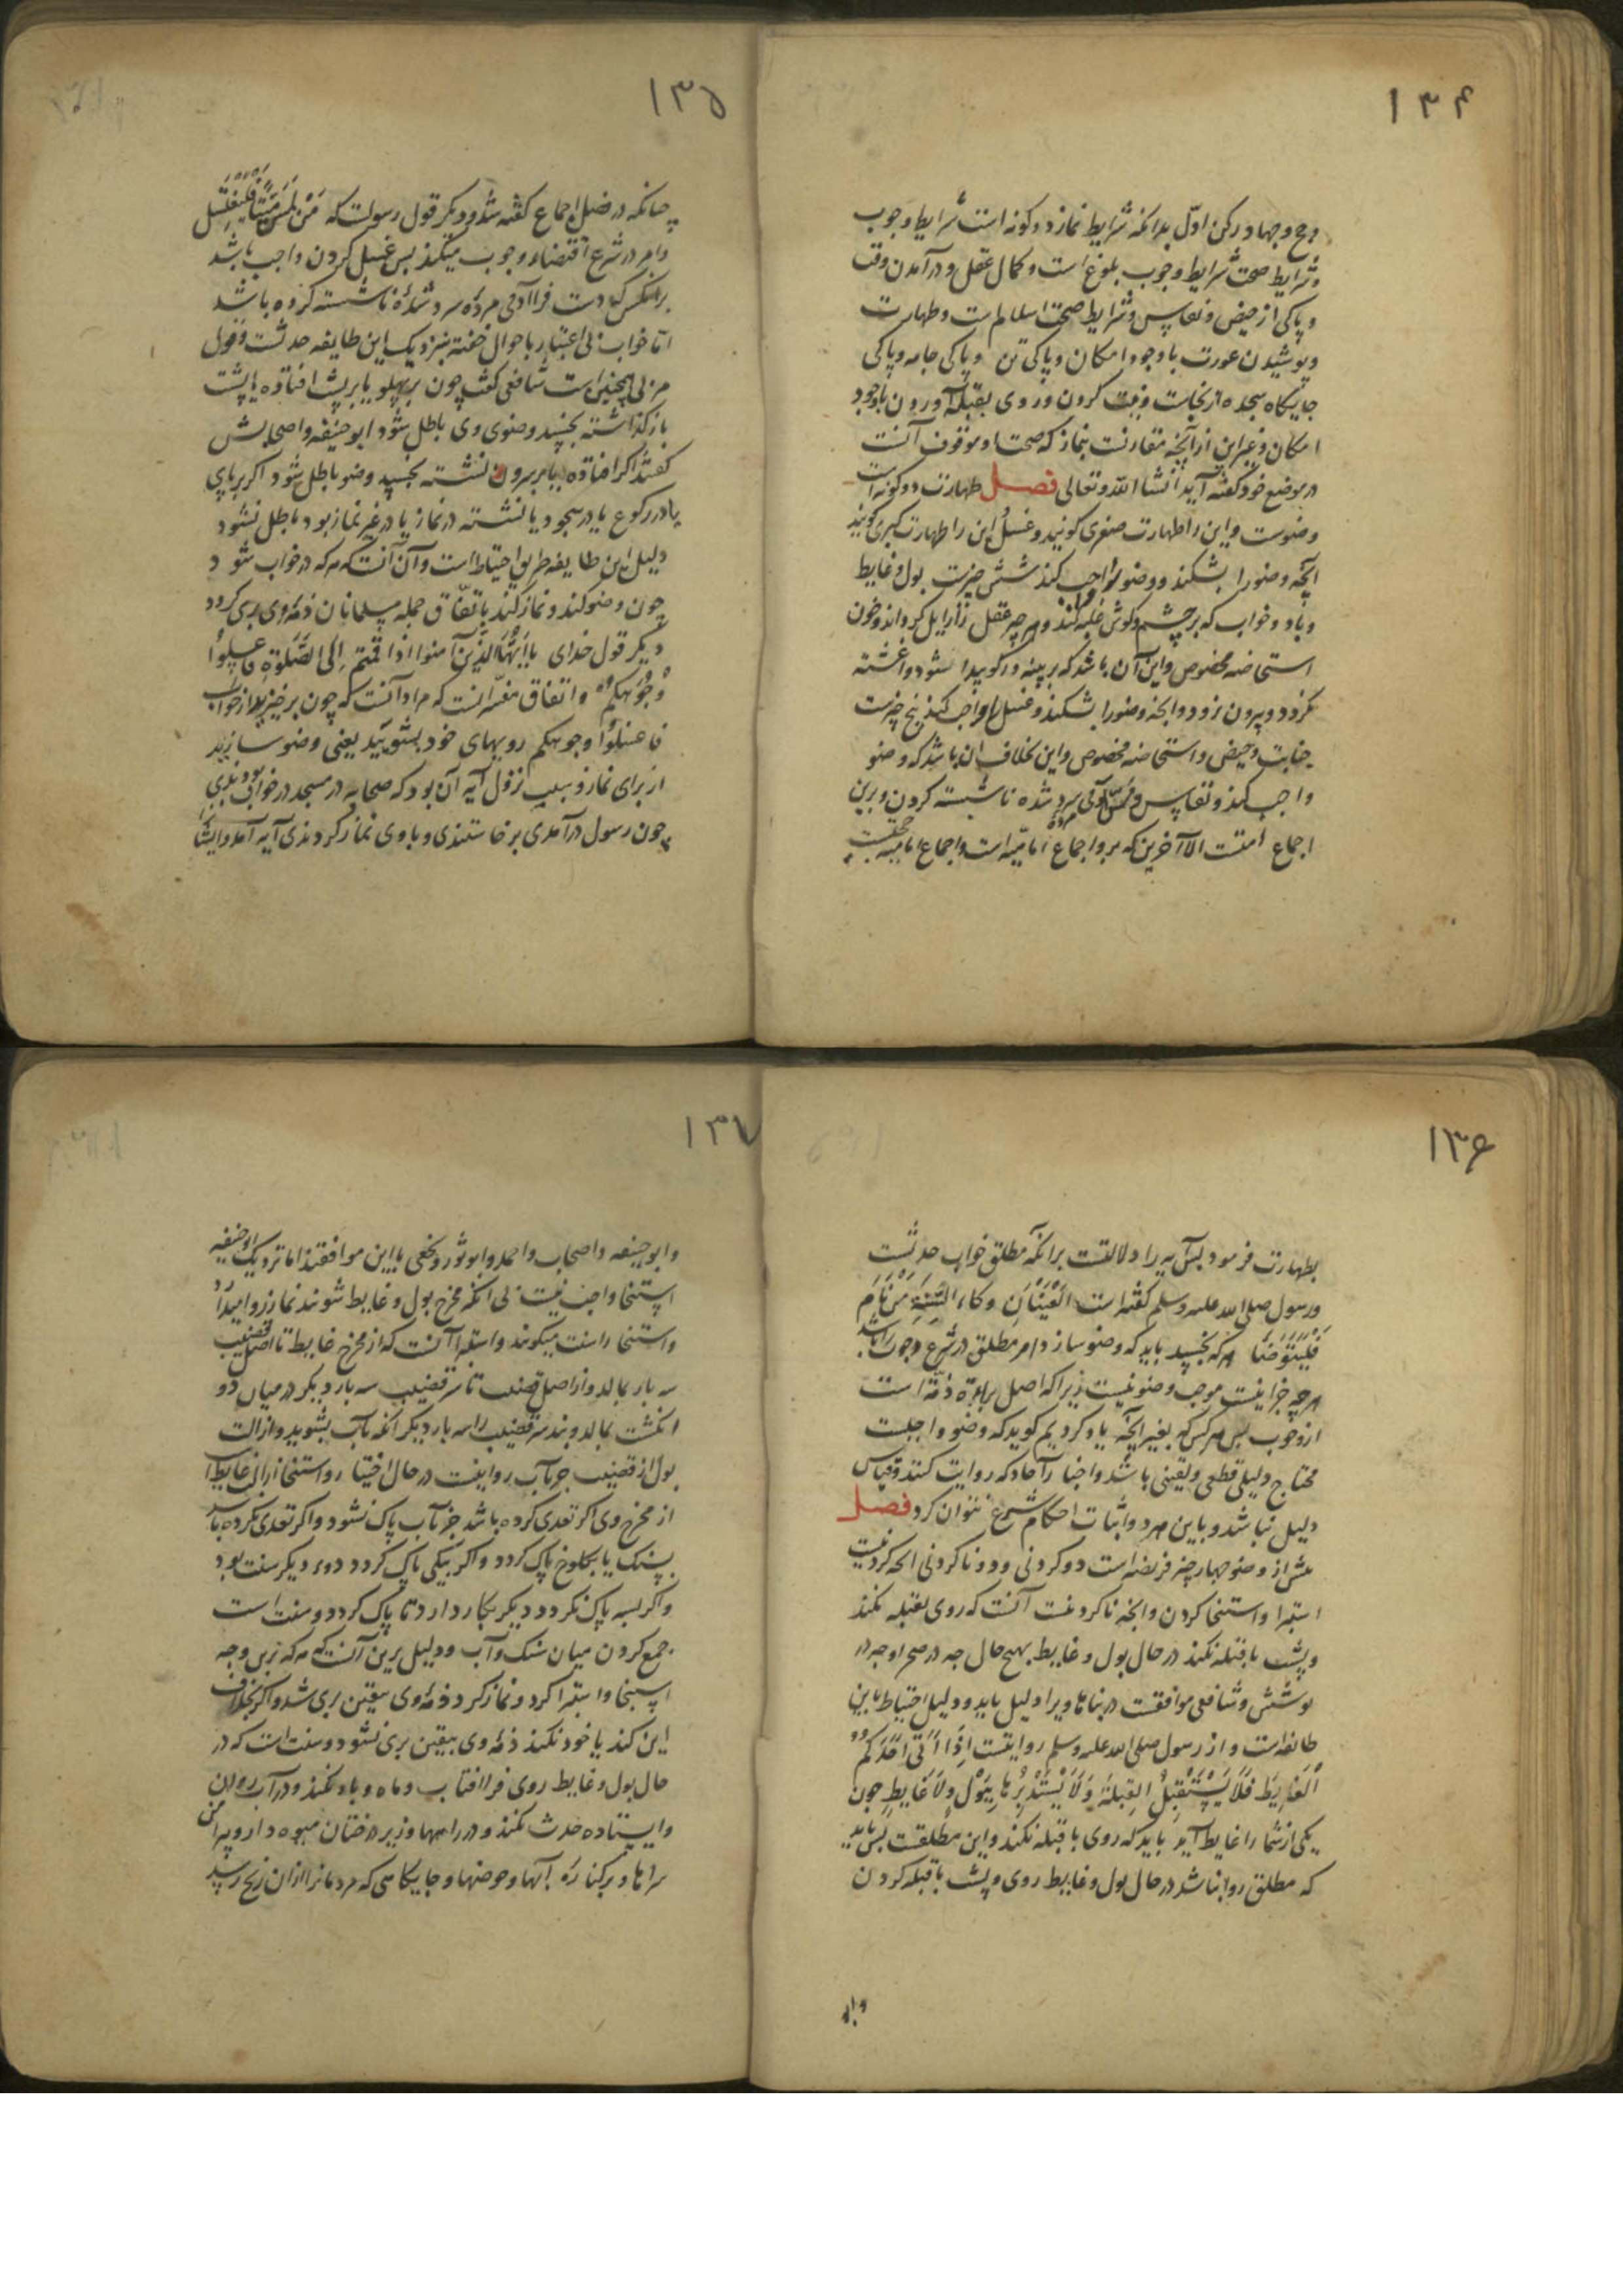 ۱۳۴
وحج وجهاد رکن اوّل بدانکه شرایط نماز دو کونه است شرایط وجوب
وشرایط صحت شرایط وجوب بلوغ است وکمال عقل ودرآمدن وقت
وپاکی از حیض ونفاس وشرایط صحت اسلام است وطهارت
وپوشیدن عورت باوجود امکان وپاکی تن وپاکی جامه وپاکی
جایکاه سجده از نجاست ونیت کردن وروی بقبله آوردن باوجود
امکان وغیر این از آنچه مقارنست بنماز که صحت او موقوف آنست
در موضع خود کفته آید انشا الله وتعالی فصل طهارت دو کونه است
وضوست واین را طهارت صغری کویند وغسل این را طهارت کبری کویند
آنچه وضو را بشکند ووضو واجب کند شش چیزست بول وغایط
وباد وخواب که بر چشم وکوش غلبه کند وهرچه عقل زایل کرداند وخون
استحاضه مخصوص واین آن باشد که بر پنبه ورکو پیدا شود واغشته
نکردد وبیرون نرود وانچه وضو را بشکند وغسل واجب کند پنج چیزست
جنابت وحیض واستحاضه مخصوص واین بخلاف ان باشد که وضو
واجب کند ونفاس ومس آدمی مرده سرد شده ناشسته کردن وبرین
اجماع امتست الا آخرین که برو اجماع امامیه است واجماع امامیه حجتست
۱۳۵
چنانکه در فصل اجماع کفته شد ودیکر قول رسولست که مَنْ لَمَسَ مَیِّتًا فَلْیَغْتَسِل
وامر در شرع اقتضاء وجوب میکند پس غسل کردن واجب باشد
بر انکس که دست فرا آدمی مرده سرد شده ناشسته کرده باشد
امّا خواب بی اعتبار باحوال خفته بنزدیک این طایفه حدثست وقول
مزنی همچنین است شافعی کفت چون بر پهلو یا بر پشت افتاده یا پشت
باز کذاشته بخسپد وضوی وی باطل شود ابو حنیفه واصحابش
کفتند اکر افتاده یا بر سرون نشسته بخسپد وضو باطل شود اکر بر پای
یا در رکوع یا در سجود یا نشسته در نماز یا در غیر نماز بود باطل نشود
دلیل این طایفه طریق احتیاط است وآن آنست که هر که در خواب شود
چون وضو کند ونماز کند باتفّاق جمله مسلمانان ذمّه وی بری کردد
دیکر قول خدای یا ایّها الّذین آمنوا اذا قمتم اِلی الصّلوة فاغسلوا
وُجُوهکم واتفاق مفسّرانست که مراد آنست که چون برخیزید از خواب
فاغسلوا وجوهکم رویهای خود بشویید یعنی وضو سازید
از برای نماز وسبب نزول آیه آن بود که صحابه در مسجد در خواب بودندی
چون رسول درآمدی برخاستندی وباوی نماز کردندی آیه آمد وایشانرا
۱۳۶
بطهارت فرمود پس آیه را دلالتست برانکه مطلق خواب حدثست
ورسول صلی الله علیه وسلم کفته است العینان وکاء السّه مَن نَام
فَلْیَتَوَضّأ هر که بخسپد باید که وضو سازد وامر مطلق در شرع وجوب را باشد
هرچه جز اینست موجب وضو نیست زیرا که اصل براءة ذمّه است
از وجوب پس هر کس که بغیر انچه یاد کردیم کوید که وضو واجبست
محتاج دلیلی قطعی ویقینی باشد واخبار آحاد که روایت کنند وقیاس
دلیل نباشد وباین هر دو اثبات احکام شرع نتوان کرد فصل
پیش از وضو چهار چیز فریضه است دو کردنی ودو ناکردنی انچه کردنیست
استبرا واستنجا کردن وانچه ناکردنیست آنست که روی بقبله نکند
وپشت با قبله نکند در حال بول وغایط بهیچ حال چه در صحرا وچه در
پوشش وشافعی موافقست در بناها ویرا دلیل باید ودلیل احتیاط با این
طائفه است واز رسول صلی الله علیه وسلم روایتست اِذَا اَتَی اَحَدَکُم
الغَایِطَ فَلَا یَسْتَقْبِلُ القِبلَةَ وَلَا یَسْتَدْبِرُها بِبَوْلٍ وَلَا غَایِطٍ چون
یکی از شما را غایط آید باید که روی با قبله نکند واین مطلقست پس باید
که مطلق روا نباشد در حال بول وغایط روی وپشت با قبله کردن
۱۳۷
وابو حنیفه واصحاب واحمد وابو ثور ونخعی با این موافقند اما نزدیک ابو حنیفه
استنجا واجب نیست بی انکه مخرج بول وغایط شویند نماز روا میدارد
واستنجا را سنت میکویند واستبرا آنست که از مخرج غایط تا اصل قضیب
سه بار بمالد واز اصل قضیب تا سر قضیب سه بار دیکر در میان دو
انکشت بمالد وبند سر قضیب را سه بار دیکر انکه بآب بشوید وازالت
بول از قضیب جز بآب روا نیست در حال اختیار واستنجا از برای غایط را
از مخرج وی اکر تعدی کرده باشد جز بآب پاک نشود واکر تعدی نکرده باشد
بسنک یا بکلوخ پاک کردد واکر بیکی پاک کردد دو دیکر سنت بود
واکر بسه پاک نکردد دیکر بکار دارد تا پاک کردد وسنت است
جمع کردن میان سنک وآب ودلیل برین آنست که هر که برین وجه
استنجا واستبرا کرد ونماز کرد ذمّه وی بیقین بری شد واکر بخلاف
این کند یا خود نکند ذمّه وی بیقین بری نشود وسنت است که در
حال بول وغایط روی فرا افتاب وماه وباد نکند ودر آب روان
وایستاده حدث نکند ودر راهها وزیر درختان میوه دار وپیرامن
سراها وبر کناره آبها وحوضها وجایکاهی که مردمانرا ازان رنج رسد